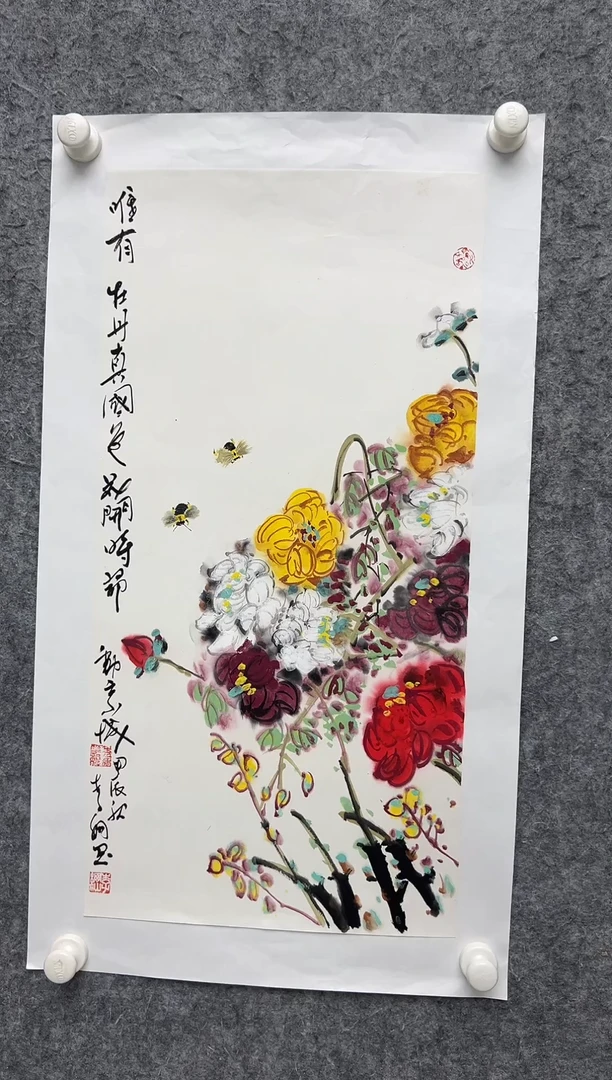 唯有牡丹真國色花開時節
動京城甲辰秋